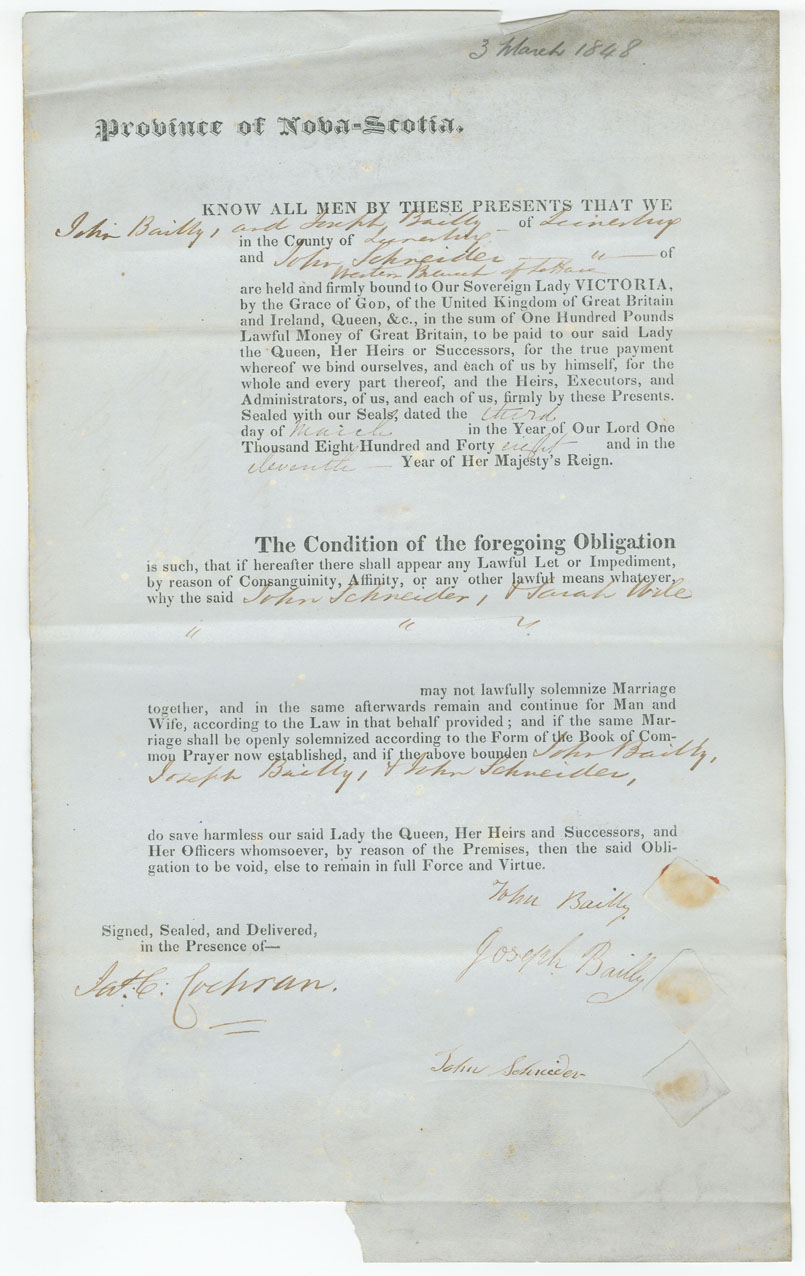 3 March 1848
Province of Nova-Scotia.
KNOW ALL MEN BY THESE PRESENTS THAT WE
John Bailly, and Joseph Bailly of Lunenburg
in the County of Lunenburg
and John Schneider — " — of
Western Branch of LaHave
are held and firmly bound to Our Sovereign Lady VICTORIA,
by the Grace of GOD, of the United Kingdom of Great Britain
and Ireland, Queen, &c., in the sum of One Hundred Pounds
Lawful Money of Great Britain, to be paid to our said Lady
the Queen, Her Heirs or Successors, for the true payment
whereof we bind ourselves, and each of us by himself, for the
whole and every part thereof, and the Heirs, Executors, and
Administrators, of us, and each of us, firmly by these Presents.
Sealed with our Seals, dated the third
day of March in the Year of Our Lord One
Thousand Eight Hundred and Forty eight and in the
eleventh — Year of Her Majesty's Reign.
The Condition of the foregoing Obligation
is such, that if hereafter there shall appear any Lawful Let or Impediment,
by reason of Consanguinity, Affinity, or any other lawful means whatever,
why the said John Schneider, & Sarah Wile
" " "
may not lawfully solemnize Marriage
together, and in the same afterwards remain and continue for Man and
Wife, according to the Law in that behalf provided; and if the same Mar-
riage shall be openly solemnized according to the Form of the Book of Com-
mon Prayer now established, and if the above bounden John Bailly,
Joseph Bailly, & John Schneider,
do save harmless our said Lady the Queen, Her Heirs and Successors, and
Her Officers whomsoever, by reason of the Premises, then the said Obli-
gation to be void, else to remain in full Force and Virtue.
John Bailly.
Signed, Sealed, and Delivered,
in the Presence of—
Joseph Bailly
Jas. C: Cochran.
John Schnieder